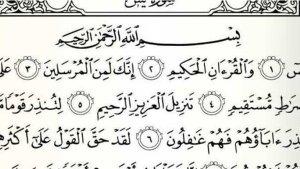 سُورَةُ يسٓ
بِسْمِ ٱللَّهِ ٱلرَّحْمَٰنِ ٱلرَّحِيمِ
سٓ ١ وَٱلْقُرْءَانِ ٱلْحَكِيمِ ٢ إِنَّكَ لَمِنَ ٱلْمُرْسَلِينَ ٣ عَلَ
رَٰطٍ مُّسْتَقِيمٍ ٤ تَنزِيلَ ٱلْعَزِيزِ ٱلرَّحِيمِ ٥ لِتُنذِرَ قَوْمًا مَّا
ذِرَ ءَابَآؤُهُمْ فَهُمْ غَٰفِلُونَ ٦ لَقَدْ حَقَّ ٱلْقَوْلُ عَلَىٰٓ أَكْثَرِهِ